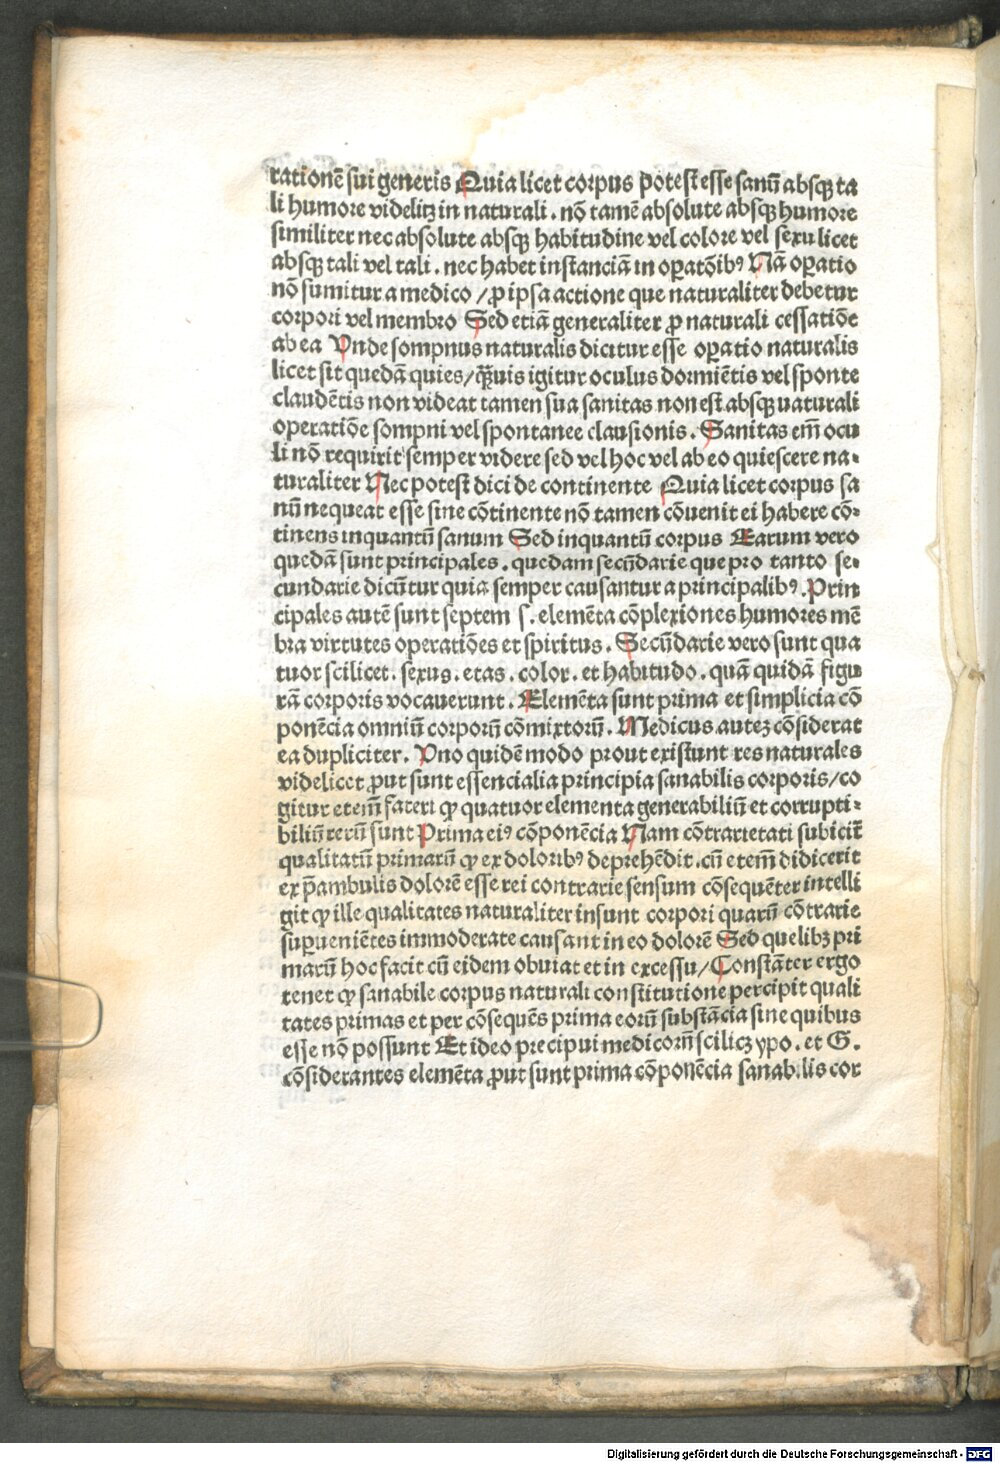 rationē sui generis Quia licet corpus potest esse sanū absqꝫ ta
li humore videlitꝫ in naturali. nō tamē absolute absqꝫ humore
similiter nec absolute absqꝫ habitudine vel colore vel sexu licet
absqꝫ tali vel tali. nec habet instanciā in oꝑatōibꝰ Nā oꝑatio
nō sumitur a medico / ꝓ ipsa actione que naturaliter debetur
corpori vel membro Sed etiā generaliter ꝓ naturali cessatiōe
ab ea Unde sompnus naturalis dicitur esse oꝑatio naturalis
licet sit quedā quies / qᷓuis igitur oculus dormiētis vel sponte
claudētis non videat tamen sua sanitas non est absqꝫ uaturali
operatiōe sompni vel spontanee clausionis. Sanitas em̄ ocu
li nō requirit semper videre sed vel hoc vel ab eo quiescere na-
turaliter Nec potest dici de continente Quia licet corpus sa
nū nequeat esse sine cōtinente nō tamen cōuenit ei habere cō-
tinens inquantū sanum Sed inquantū corpus Earum vero
quedā sunt principales. quedam secūdarie que pro tanto se-
cundarie dicūtur quia semper causantur a principalibꝰ. Prin
cipales autē sunt septem s. elemēta cōplexiones humores mē
bra virtutes operatiōes et spiritus. Secūdarie vero sunt qua
tuor scilicet. sexus. etas. color. et habitudo. quā quidā figu
rā corporis vocauerunt. Elemēta sunt prima et simplicia cō
ponēcia omniū corporū cōmixtorū. Medicus auteꝫ cōsiderat
ea dupliciter. Uno quidē modo prout existunt res naturales
videlicet ꝓut sunt essencialia principia sanabilis corporis / co
gitur etem̄ fateri ꝙ quatuor elementa generabiliū et corrupti-
biliū rerū sunt Prima eiꝰ cōponēcia Nam cōtrarietati subicit̄
qualitatū primarū ꝙ ex doloribꝰ deprehēdit. cū etem̄ didicerit
ex p̄ambulis dolorē esse rei contrarie sensum cōsequēter intelli
git ꝙ ille qualitates naturaliter insunt corpori quarū cōtrarie
suꝑueniētes immoderate causant in eo dolorē Sed quelibꝫ pri
marū hoc facit cū eidem obuiat et in excessu / Constāter ergo
tenet ꝙ sanabile corpus naturali constitutione percipit quali
tates primas et per cōsequēs prima eorū substācia sine quibus
esse nō possunt Et ideo precipui medicorū scilicꝫ ypo. et G.
cōsiderantes elemēta ꝓut sunt prima cōponēcia sanabilis cor
Digitalisierung gefördert durch die Deutsche Forschungsgemeinschaft - DFG